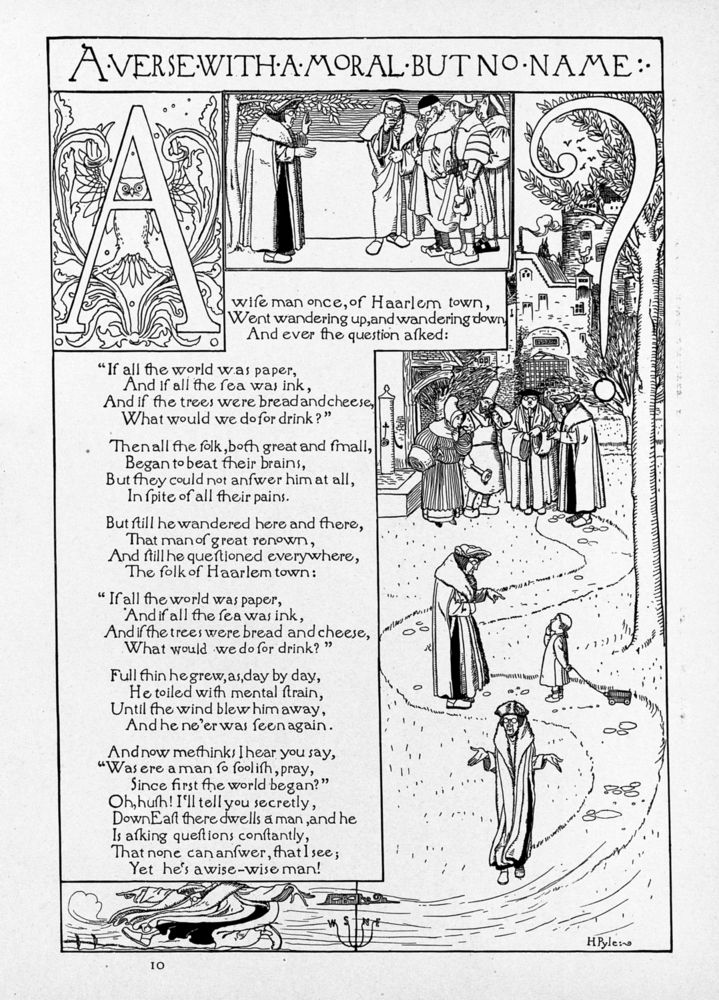 A·VERSE·WITH·A·MORAL·BUT NO·NAME:·
A
?
wiſe man once, of Haarlem town,
Went wandering up, and wandering down,
And ever the queſtion aſked:
"If all the world was paper,
And if all the ſea was ink,
And if the trees were bread and cheese,
What would we do for drink?"
Then all the folk, both great and ſmall,
Began to beat their brains,
But they could not anſwer him at all,
In ſpite of all their pains.
But ſtill he wandered here and there,
That man of great renown,
And ſtill he queſtioned everywhere,
The folk of Haarlem town:
"If all the world was paper,
And if all the ſea was ink,
And if the trees were bread and cheese,
What would we do for drink?"
Full thin he grew, as, day by day,
He toiled with mental ſtrain,
Until the wind blew him away,
And he ne'er was ſeen again.
And now methinks I hear you say,
"Was ere a man ſo fooliſh, pray,
Since firſt the world began?"
Oh, huſh! I'll tell you secretly,
Down East there dwells a man, and he
Is aſking queſtions conſtantly,
That none can anſwer, that I see;
Yet he's a wise-wise man!
W S N E
H.Pyle:
10